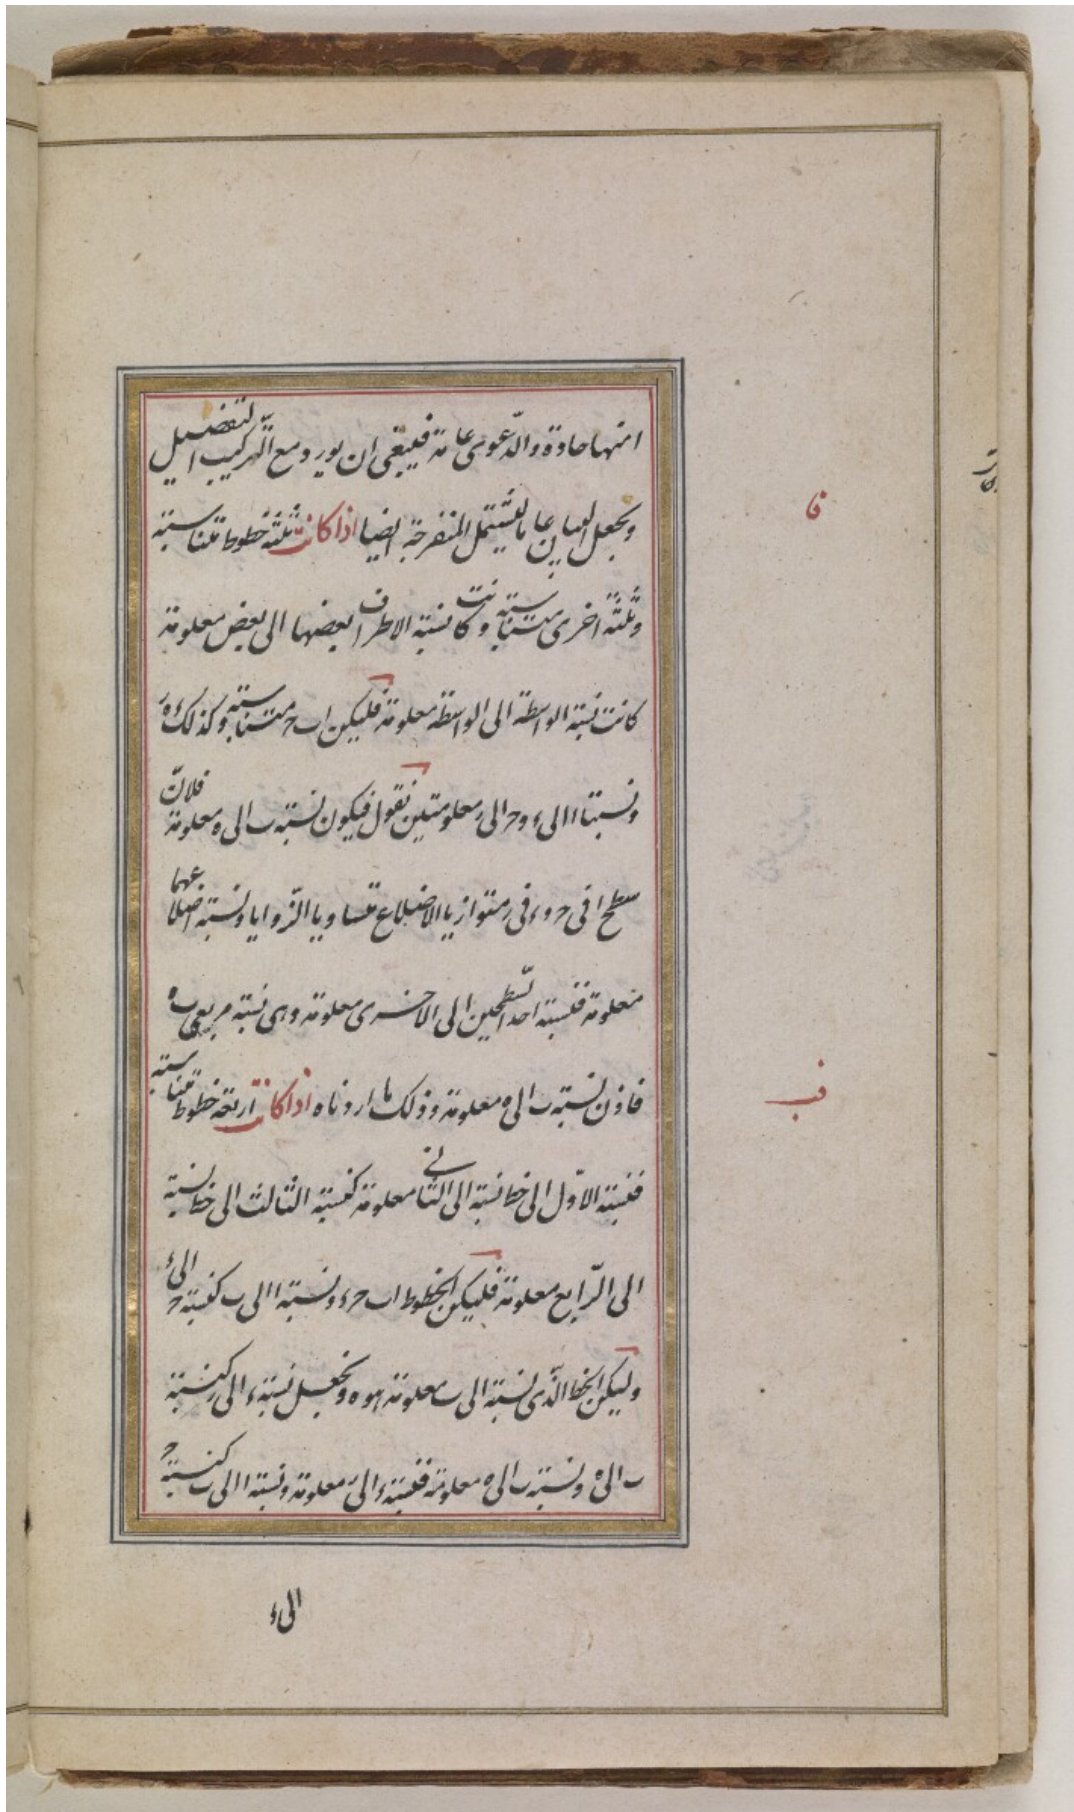 انها حادة والدّعوى عامة فينبغى ان يورد مع الّتركيب التفضيل
ويجعل البيان عاما ليشتمل المنفرجة ايضا اذا كانت ثلثة خطوط متناسبته
فا
وثلثة اخرى متناسبته وكانت نسبته الاطراف بعضها الى بعض معلومة
كانت نسبته الواسطة الى الواسطة معلومة فليكن ا ب ح متناسبته وكذلك ء ه ر
ونسبتا ا الى ء و ح الى ر معلومتين نقول فيكون نسبته ب الى ه معلومة فلانّ
سطح ا فى ح و ء فى ر متوازيا الاضلاع متساويا الزّوايا ونسبته اضلاعهما
معلومة فنسبته احد السّطحين الى الاخرى معلومة وهى نسبته مربعى ب ه
فاذن نسبته ب الى ه معلومة وذلك ما اردناه اذا كانت اربعة خطوط متناسبته
فب
فنسبته الاوّل الى خط نسبته الى الثانى معلومة كنسبته الثالث الى خط نسبته
الى الرّابع معلومة فليكن الخطوط ا ب ح ء ونسبته ا الى ب كنسبته ح الى ء
وليكن الخط الّذى نسبته الى ب معلومة هو ه ونجعل نسبته ء الى ر كنسبته
ب الى ه ونسبته ب الى ه معلومة فنسبته ء الى ر معلومة ونسبته ا الى ب كنسبته ح
الى ء